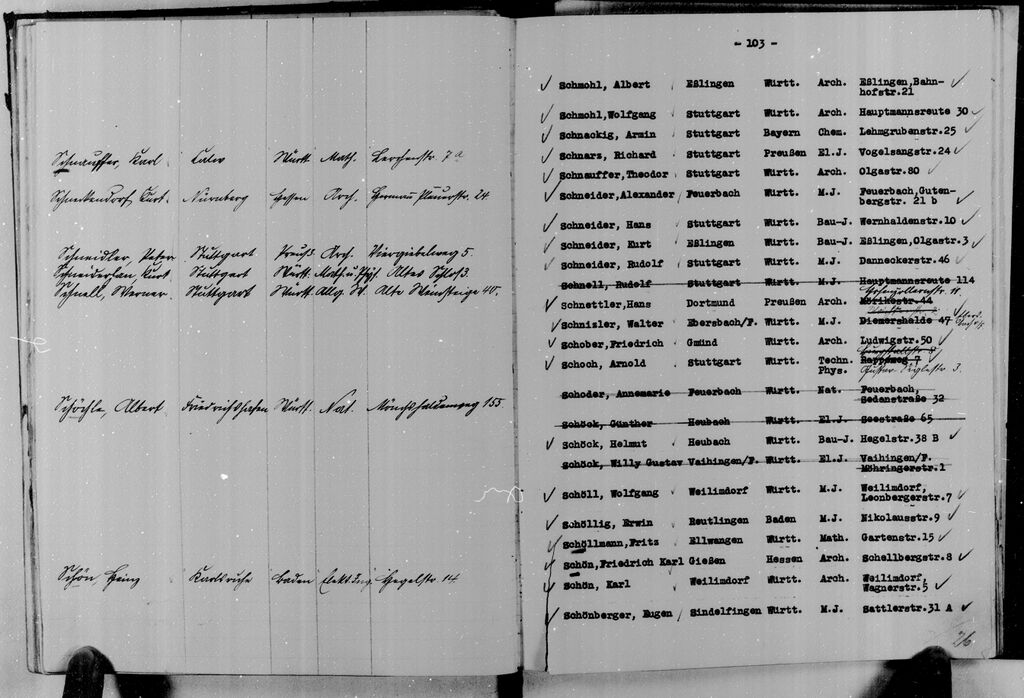 Schnauffer, Karl Calw Württ. Math. Lerchenstr. 7a
Schneckendorf, Kurt Nürnberg Hessen Arch. Hermann Pleuerstr. 24
Schneidler, Peter Stuttgart Preuß. Arch. Viergiebelweg 5.
Schneiderhan, Kurt Stuttgart Württ. Math.u.Phys. Altes Schloß.
Schnell, Werner Stuttgart Württ. Allg. W. Alte Weinsteige 40.
Schöchle, Albert Friedrichshafen Württ. Nat. Mönchhaldenweg 155
Schön Heinz Karlsruhe Baden Elekt.Ing. Hegelstr. 14
- 103 -
Schmohl, Albert Eßlingen Württ. Arch. Eßlingen,Bah-
hofstr.21
Schmohl,Wolfgang Stuttgart Württ. Arch. Hauptmannsreute 30
Schnackig, Armin Stuttgart Bayern Chem. Lehmgrubenstr.25
Schnarz, Richard Stuttgart Preußen El.J. Vogelsangstr.24
Schnauffer,Theodor Stuttgart Württ. Arch. Olgastr.80
Schneider,Alexander Feuerbach Württ. M.J. Feuerbach,Guten-
bergstr. 21 b
Schneider, Hans Stuttgart Württ. Bau-J. Wernhaldenstr.10
Schneider, Kurt Eßlingen Württ. Bau-J. Eßlingen,Olgastr.3
Schneider, Rudolf Stuttgart Württ. M.J. Danneckerstr.46
Schnell, Rudolf Stuttgart Württ. M.J. Hauptmannsreute 114
Hohenzollernstr. 11.
Schnettler,Hans Dortmund Preußen Arch. Mörikestr.44
Schnizler, Walter Ebersbach/F. Württ. M.J. Diemershalde 47
Schober,Friedrich Gmünd Württ. Arch. Ludwigstr.50
Schoch, Arnold Stuttgart Württ. Techn. Rappsweg 7
Phys. Gustav Sieglestr. 3.
Schoder, Annemarie Feuerbach Württ. Nat. Feuerbach,
Sedanstraße 32
Schöck, Günther Heubach Württ. El.J. Seestraße 65
Schöck, Helmut Heubach Württ. Bau-J. Hegelstr.38 B
Schöck, Willy Gustav Vaihingen/F. Württ. El.J. Vaihingen/F.
Möhringerstr.1
Schöll, Wolfgang Weilimdorf Württ. M.J. Weilimdorf,
Leonbergerstr.7
Schöllig, Erwin Reutlingen Baden M.J. Nikolausstr.9
Schöllmann,Fritz Ellwangen Württ. Math. Gartenstr.15
Schön,Friedrich Karl Gießen Hessen Arch. Schellbergstr.8
Schön, Karl Weilimdorf Württ. Arch. Weilimdorf,
Wagnerstr.5
Schönberger, Eugen Sindelfingen Württ. M.J. Sattlerstr.31 A